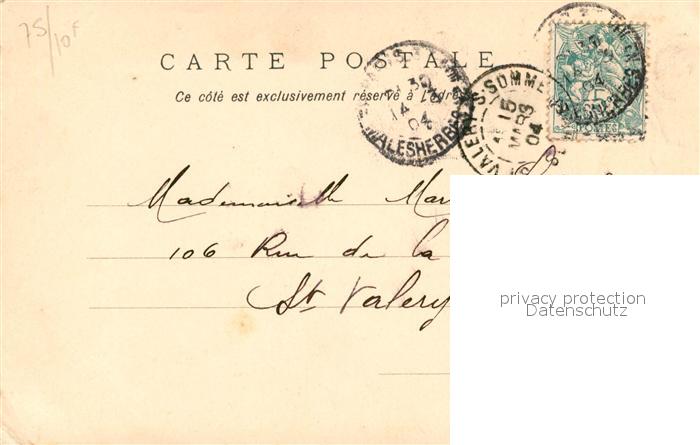 75/10F
CARTE POSTALE
Ce côté est exclusivement réservé à l'adre
PARIS
30
14
04
MALESHERBES
VALERY S SOMME
15
MARS
04
POSTES
Mademoiselle Mar
106 Rue de la
St Valery
privacy protection
Datenschutz